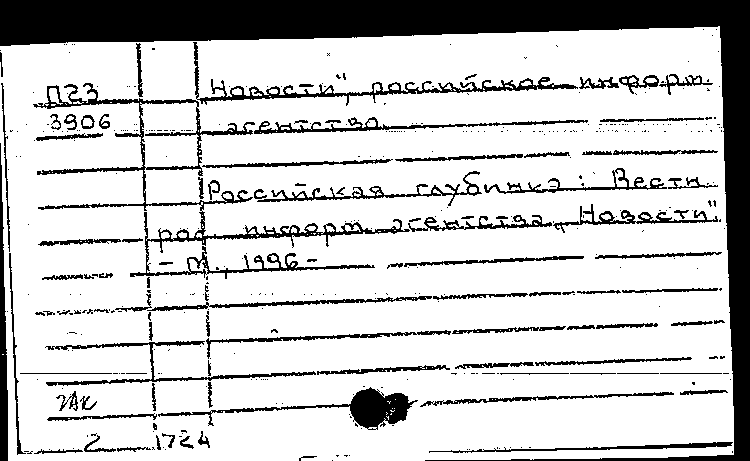 П23 Новости", российское информ.
3906 агентство.
Российская глубинка: Вестн.
рос. информ. агентства „Новости".
– М., 1996 –
2 1724